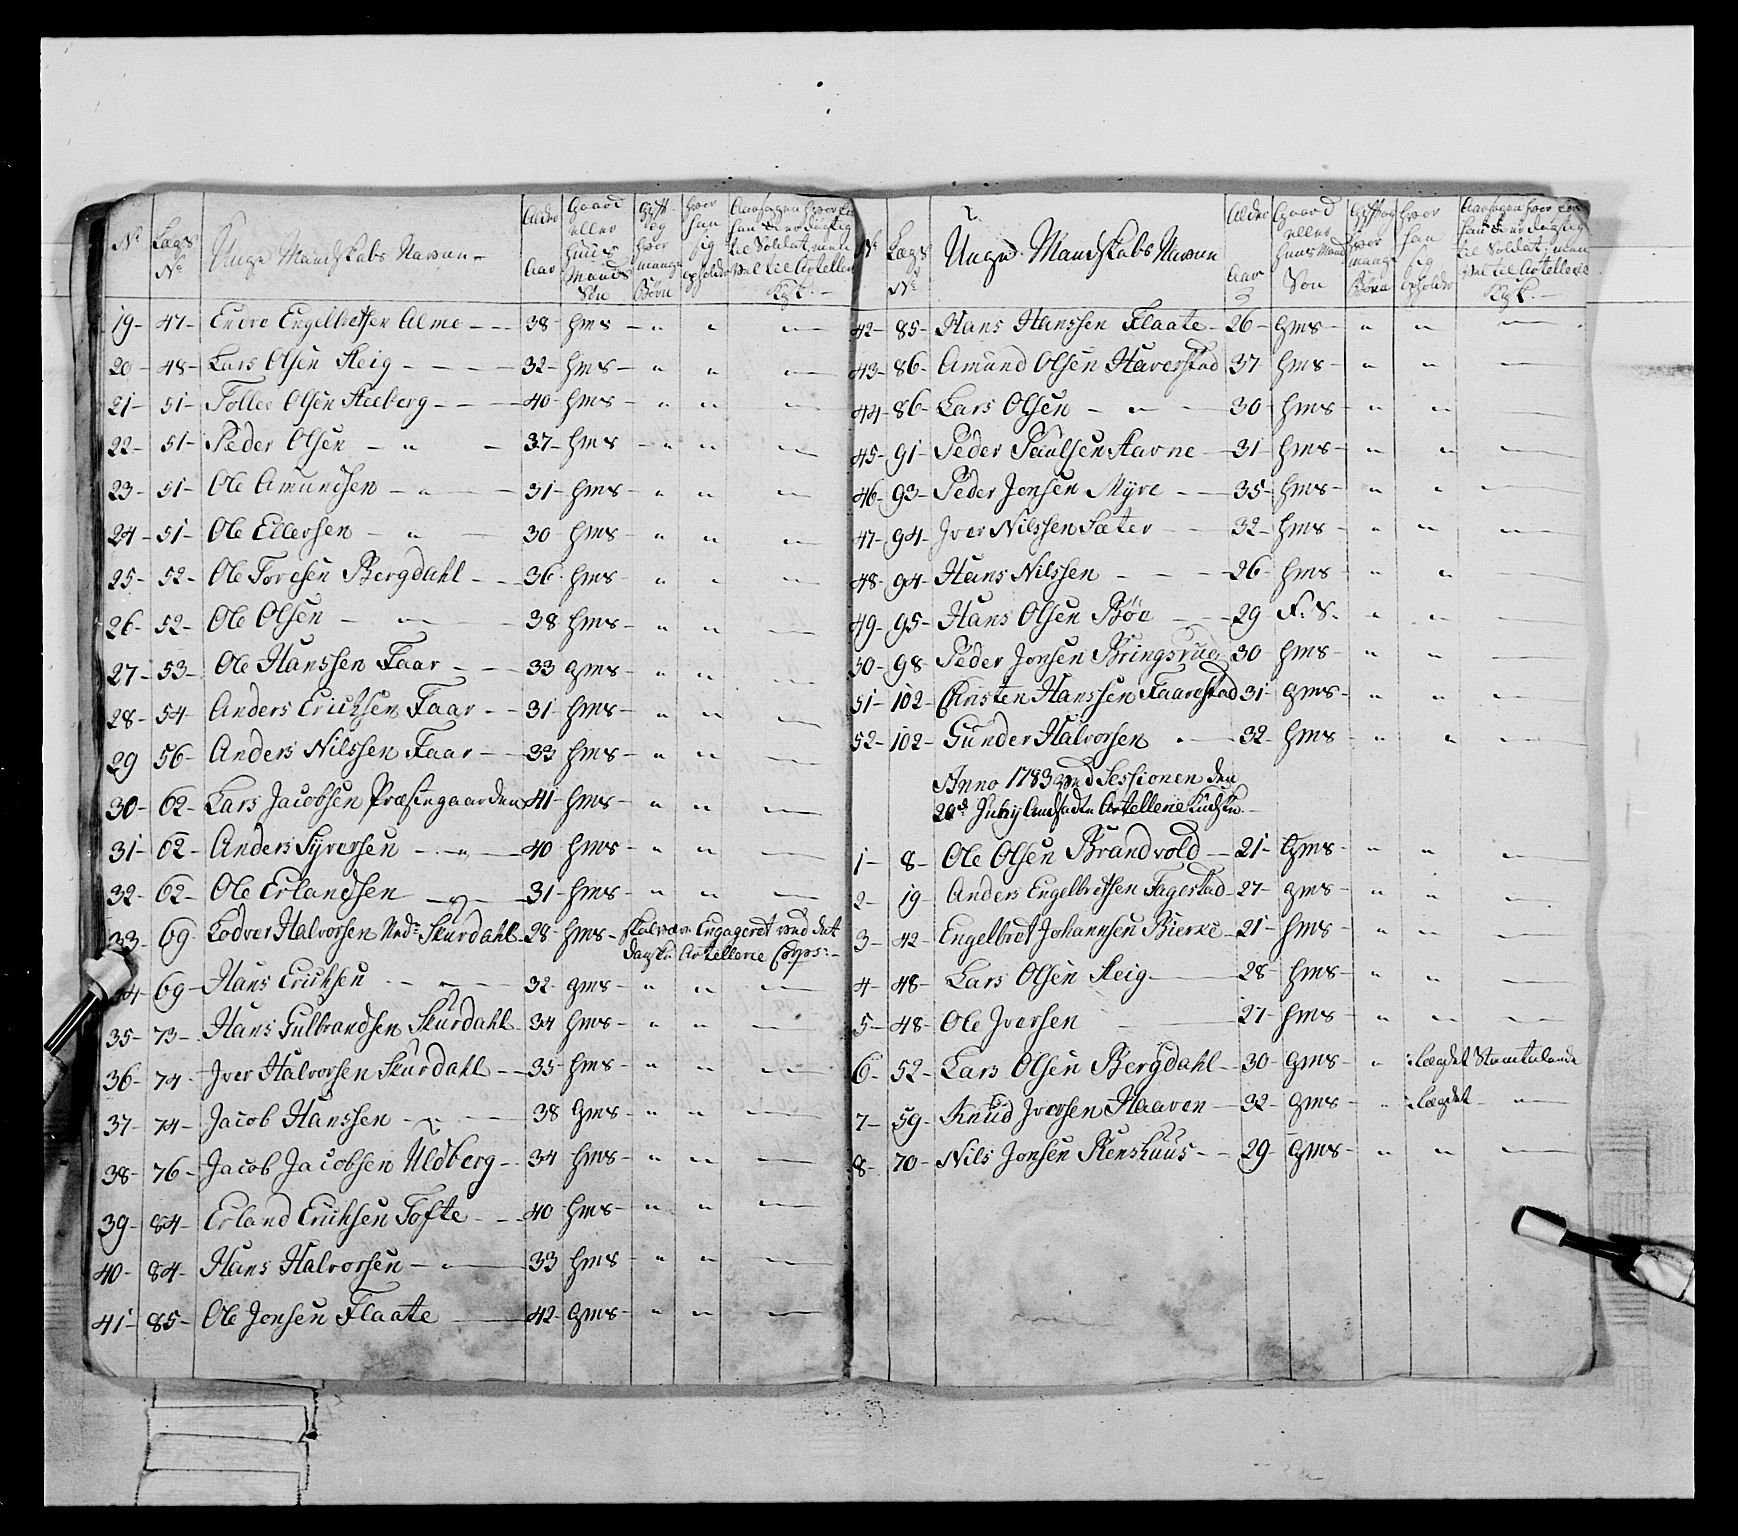 No Lægs No Unge Mandskabs Navne Alder Aar Gaard eller Huus Mands Søn Gift og hvor mange Børn hvor han sig opholder Aarsagen hvorfor han ei er dygtig til Soldat, men vel til Artellerie
19 - 47 - Endre Engelbretsen Alme - - - 38 - hms - " " -
20 - 48 - Lars Olsen Steig - - - - 32 - hms - " " -
21 - 51 - Tollev Olsen Steeberg - - - 40 - hms - " " -
22 - 51 - Peder Olsen - " - 37 - hms - " " -
23 - 51 - Ole Amundsen - " - 31 - hms - " " -
24 - 51 - Ole Ellevsen - " - 30 hms - " " -
25 - 52 - Ole Toresen Bergdahl - - 36 - hms - " " -
26 - 52 - Ole Olsen - " - 38 hms - " " -
27 - 53 - Ole Hanssen Faar - - 33 gms - " " -
28 - 54 - Anders Erichsen Faar - - 31 - hms - " " -
29 56 - Anders Nilssen Faar - - 33 hms - " " -
30 - 62 - Lars Jacobsen Præstegaarden 41 - hms - " " -
31 - 62 - Anders Syversen - " - 40 hms - " " -
32 - 62 - Ole Erlandsen - " - 31 - hms - " " -
33 - 69 - Lodver Halvorsen Ned: Skurdahl - 28 - hms - skal være Engageret ved det
danske Artellerie Corps: -
34 - 69 - Hans Erichsen - " - 32 - gms - " " -
35 - 73 - Hans Gulbrandsen Skurdahl - 34 - hms - " " -
36 - 74 - Iver Halvorsen Skurdahl - - 35 - hms - " " -
37 - 74 - Jacob Hanssen - " - 38 gms - " " -
38 - 76 - Jacob Jacobsen Uldberg - 34 - hms - " " -
39 - 84 - Erland Erichsen Tofte - - 40 - hms - " " -
40 - 84 - Hans Halvorsen - " - 33 hms - " " -
41 - 85 - Ole Jonsen Flaate - 42 - gms - " " -
No Lægs No Unge Mandskabs Navne Alder Aar Gaard eller Huus Mand Søn Gift og hvor mange Børn hvor han sig opholder Aarsagen hvorfor han ei er dygtig til Soldat, men vel til Artellerie
42 - 85 - Hans Hanssen Flaate - 26 - gms - " " -
43 - 86 - Amund Olsen Haverstad 37 - hms - " " -
44 - 86 - Lars Olsen - " - 30 hms - " " -
45 - 91 - Peder Paulsen Stavne - 31 - hms - " " -
46 - 93 - Peder Jonsen Myre - - 35 - hms - " " -
47 - 94 - Iver Nilssen Sæter - - 32 - hms - " " -
48 - 94 - Hans Nilssen - - - 26 - hms - " " -
49 - 95 - Hans Olsen Bøe - - 29 F: S. " " -
50 - 98 - Peder Jonsen Bringsrud 30 hms - " " -
51 - 102 - Christen Hanssen Kaarestad 31 - gms - " " -
52 - 102 - Gunder Halvorsen " - 32 - hms - " " -
Anno 1783 ved Sessionen den
20d July Ansadte Artellerie Kudske
1 - 8 - Ole Olsen Brandvold - 21 - gms - " " -
2 - 19 - Anders Engelbretsen Fagestad - 27 - gms - " " -
3 - 42 - Engelbret Johannsen Bierke - 21 - hms - " " -
4 - 48 - Lars Olsen Steig - 28 - hms - " " -
5 - 48 - Ole Iversen - 27 - hms - " " -
6 - 52 - Lars Olsen Bergdahl - - 30 - gms - " i Lægdet Stamtalende
7 - 59 - Knud Iversen Haaven - 32 - gms - " i Lægdet - " -
8 - 70 - Nils Jonsen Stenshuus - - 29 - gms - " " -